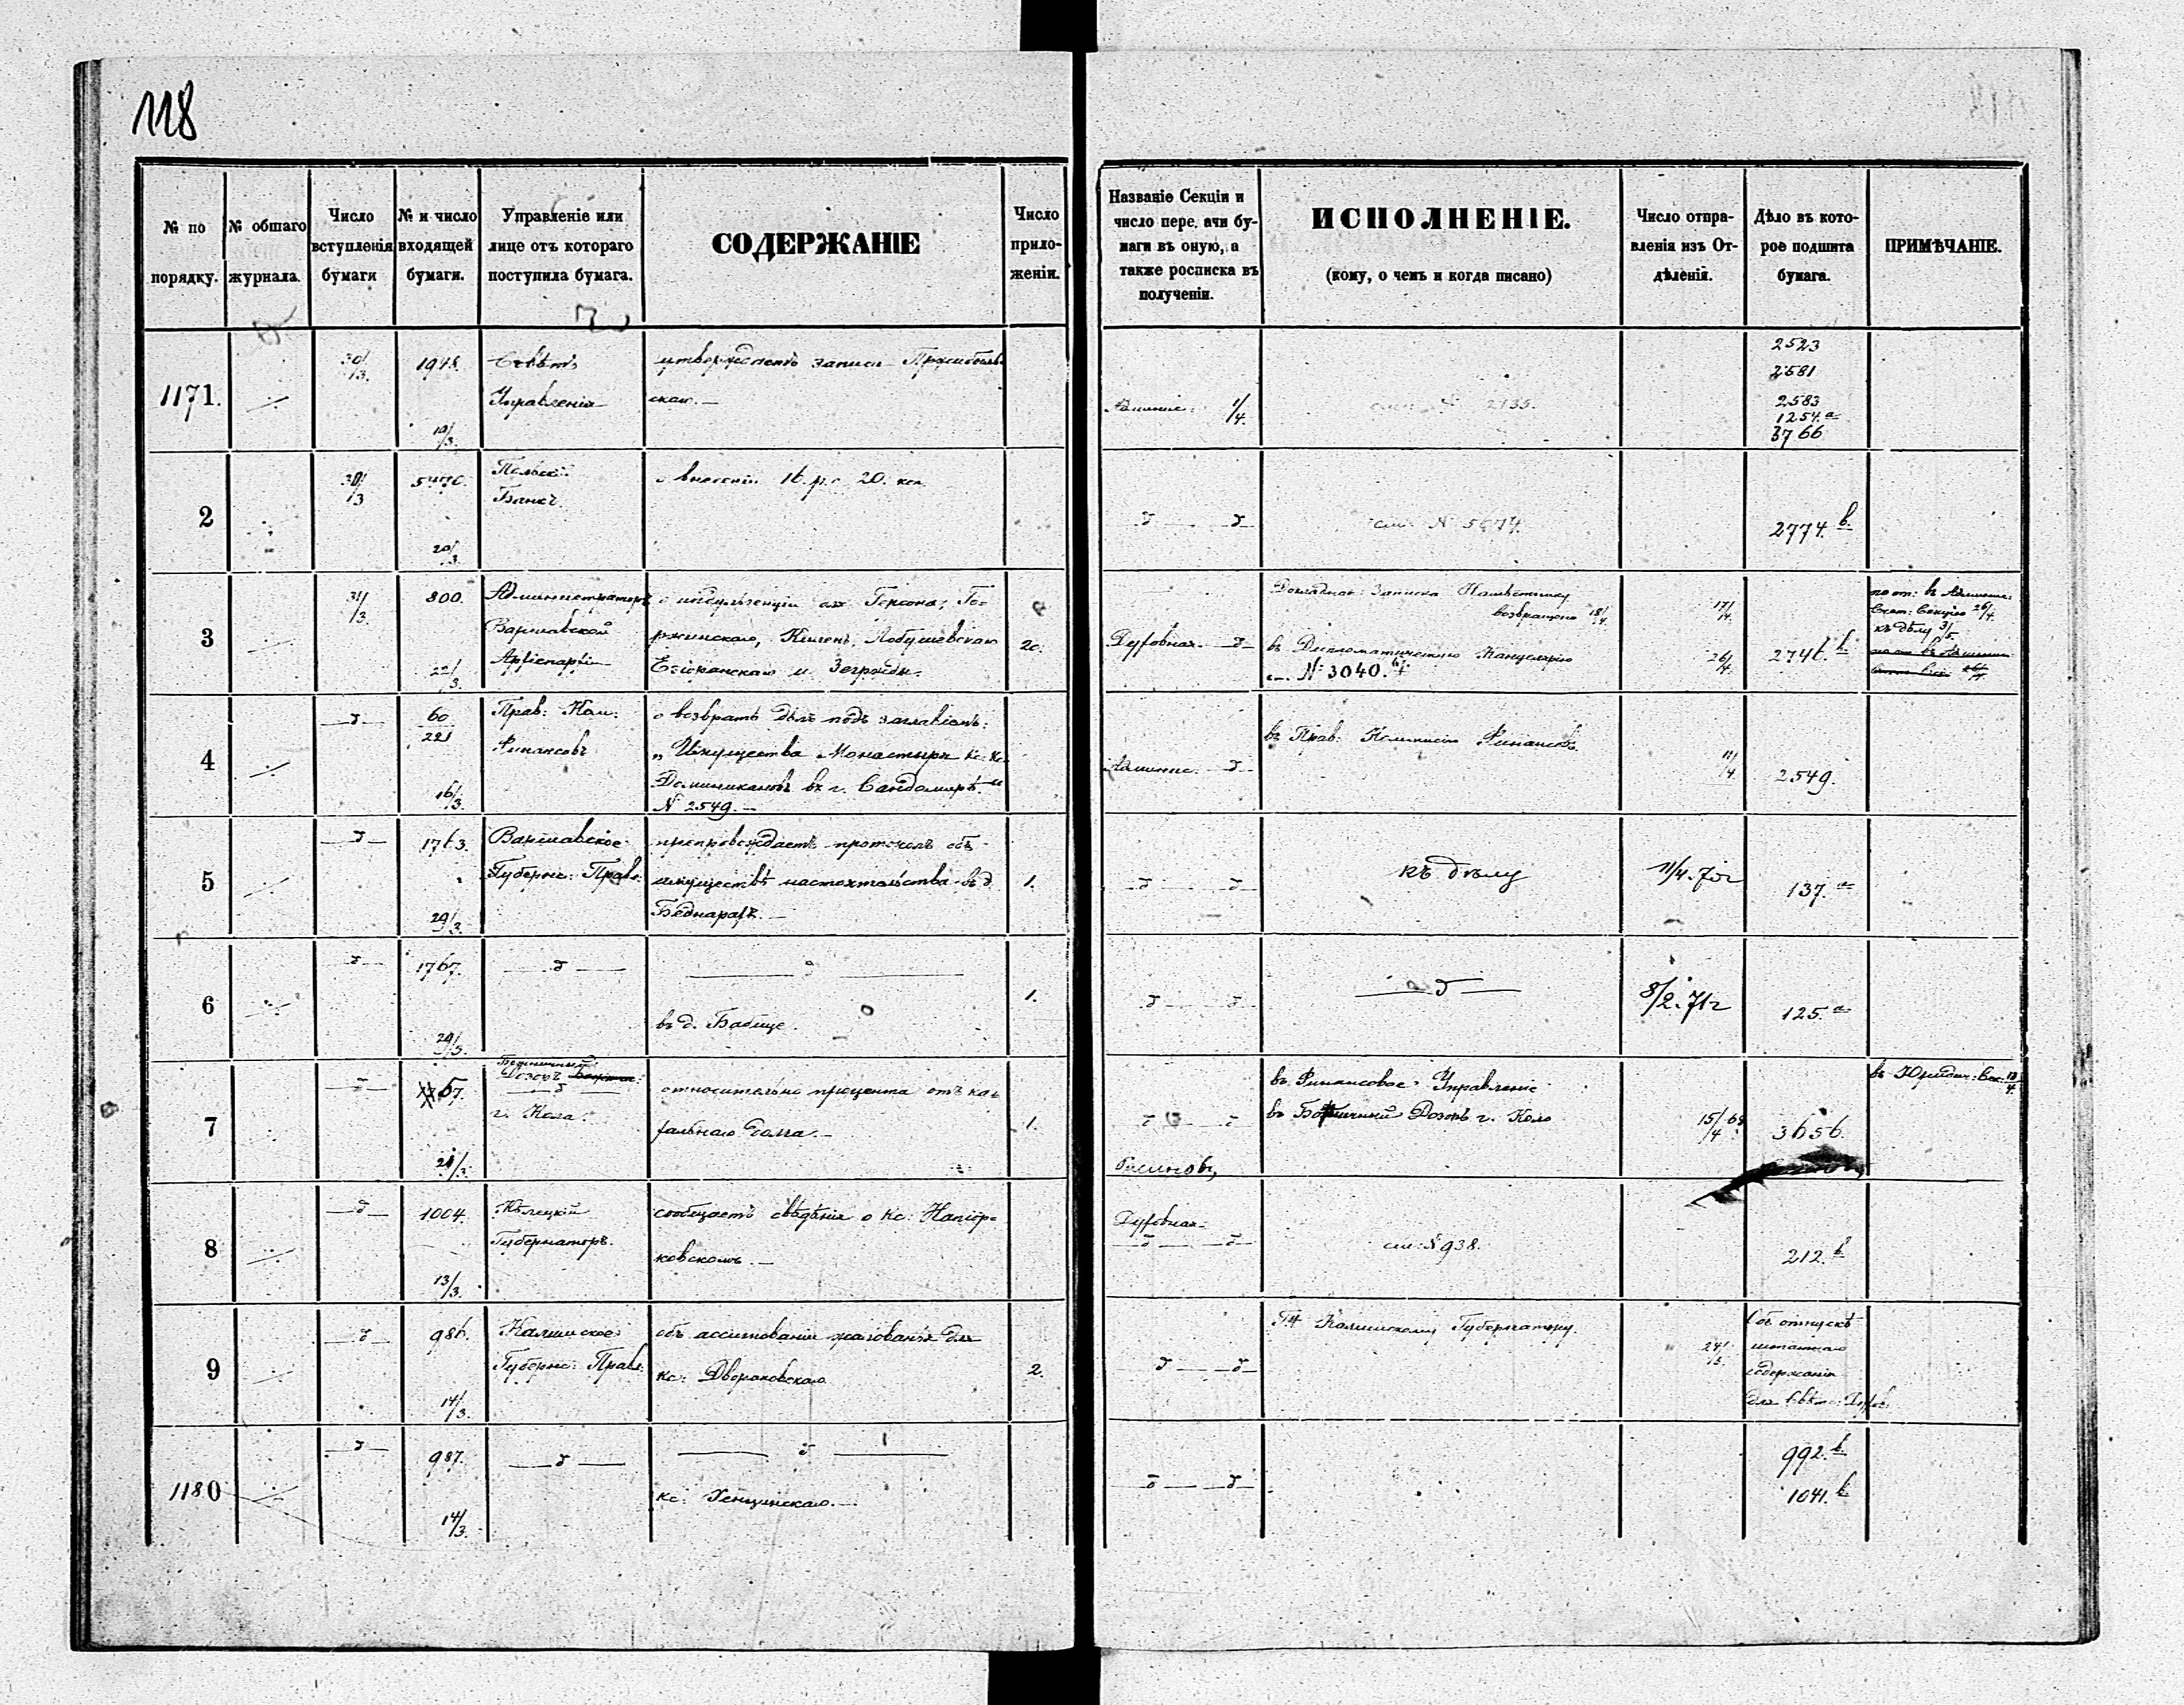 118
№ по порядку.
№ общаго журнала.
Число вступленія бумаги
№ и число входящей бумаги.
Управленіе или лице отъ котораго поступила бумага.
СОДЕРЖАНІЕ
Число приложеніи.
Названіе Секціи и число пере. ачи бумаги въ оную, а также росписка въ полученіи.
ИСПОЛНЕНІЕ.
(кому, о чемъ и когда писано)
Число отправленія изъ Отдѣленія.
Дѣло въ которое подшита бумага.
ПРИМѢЧАНІЕ.
1171.
30/3.
1948.
19/3.
Совѣтъ
Управленія
утвержденіе записи
скаго.—
1/4.
№ 2135.
2523
2581
2583
1254.а
3766
2
30/3
20/3.
Польскій
Банкъ
о внесеніи 16. р. 20. коп.
д — д
см. № 5674.
2774. b.
3
31/3.
800.
22/3.
Администраторъ
Варшавской
Архіепархіи
о индульгенціи для Герсона, Го-
ржинскаго,
и
20.
Духовная. д
Докладная Записка Намѣстнику
возвращено 18/4.
въ Дипломатическую Канцелярію
№ 3040.
17/4.
26/4.
2746. b
къ дѣлу 3/5.
4
д
60
221
16/3.
Прав: Ком:
Финансовъ
о возвратѣ дѣлъ подъ заглавіемъ:
„Имущества Монастыря Кс: Кс:
Доминикановъ въ г. Сандомирѣ."
№ 2549.—
д
въ Прав: Коммисію Финансовъ
11/4
2549.
5
д
1763.
29/3.
Варшавское
Губерн: Правл:
препровождаетъ протоколъ объ
имуществѣ настоятельства въ д.
Беднарахъ.—
1.
д — д
къ дѣлу
11/4.70г
137. а
6
д
1767.
29/3.
д
д
въ д. Бабице.
1.
д — д
д
8/2.71г
125. а
7
д
57.
21/3.
Божничный
Дозоръ
г. Кола.
относительно процента отъ ка-
гальнаго долга.—
1.
д — д
въ Финансовое Управленіе
въ Божничный Дозоръ г. Коло
15/4 69
3656.
въ Юридич: Сек: 13/4.
8
д
1004.
13/3.
Кѣлецкій
Губернаторъ.
сообщаетъ свѣдѣнія о Кс: Напіор-
ковскомъ.—
Духовная.
д — д
см: № 938.
212. b
9
д
986.
14/3.
Калишское
Губерн: Правл:
объ ассигнованіи жалованья для
кс: Двораковскаго
2.
д — д
Калишскому Губернатору.
24/
объ отпускѣ
штатнаго
содержанія
для
1180
д
987.
14/3.
д
д
кс: Хенцинскаго.—
д — д
992. b.
1041. b